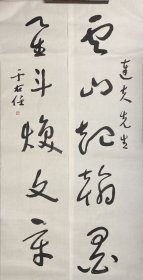 雲山起翰墨
達夫先生
星斗煥文章
于右任